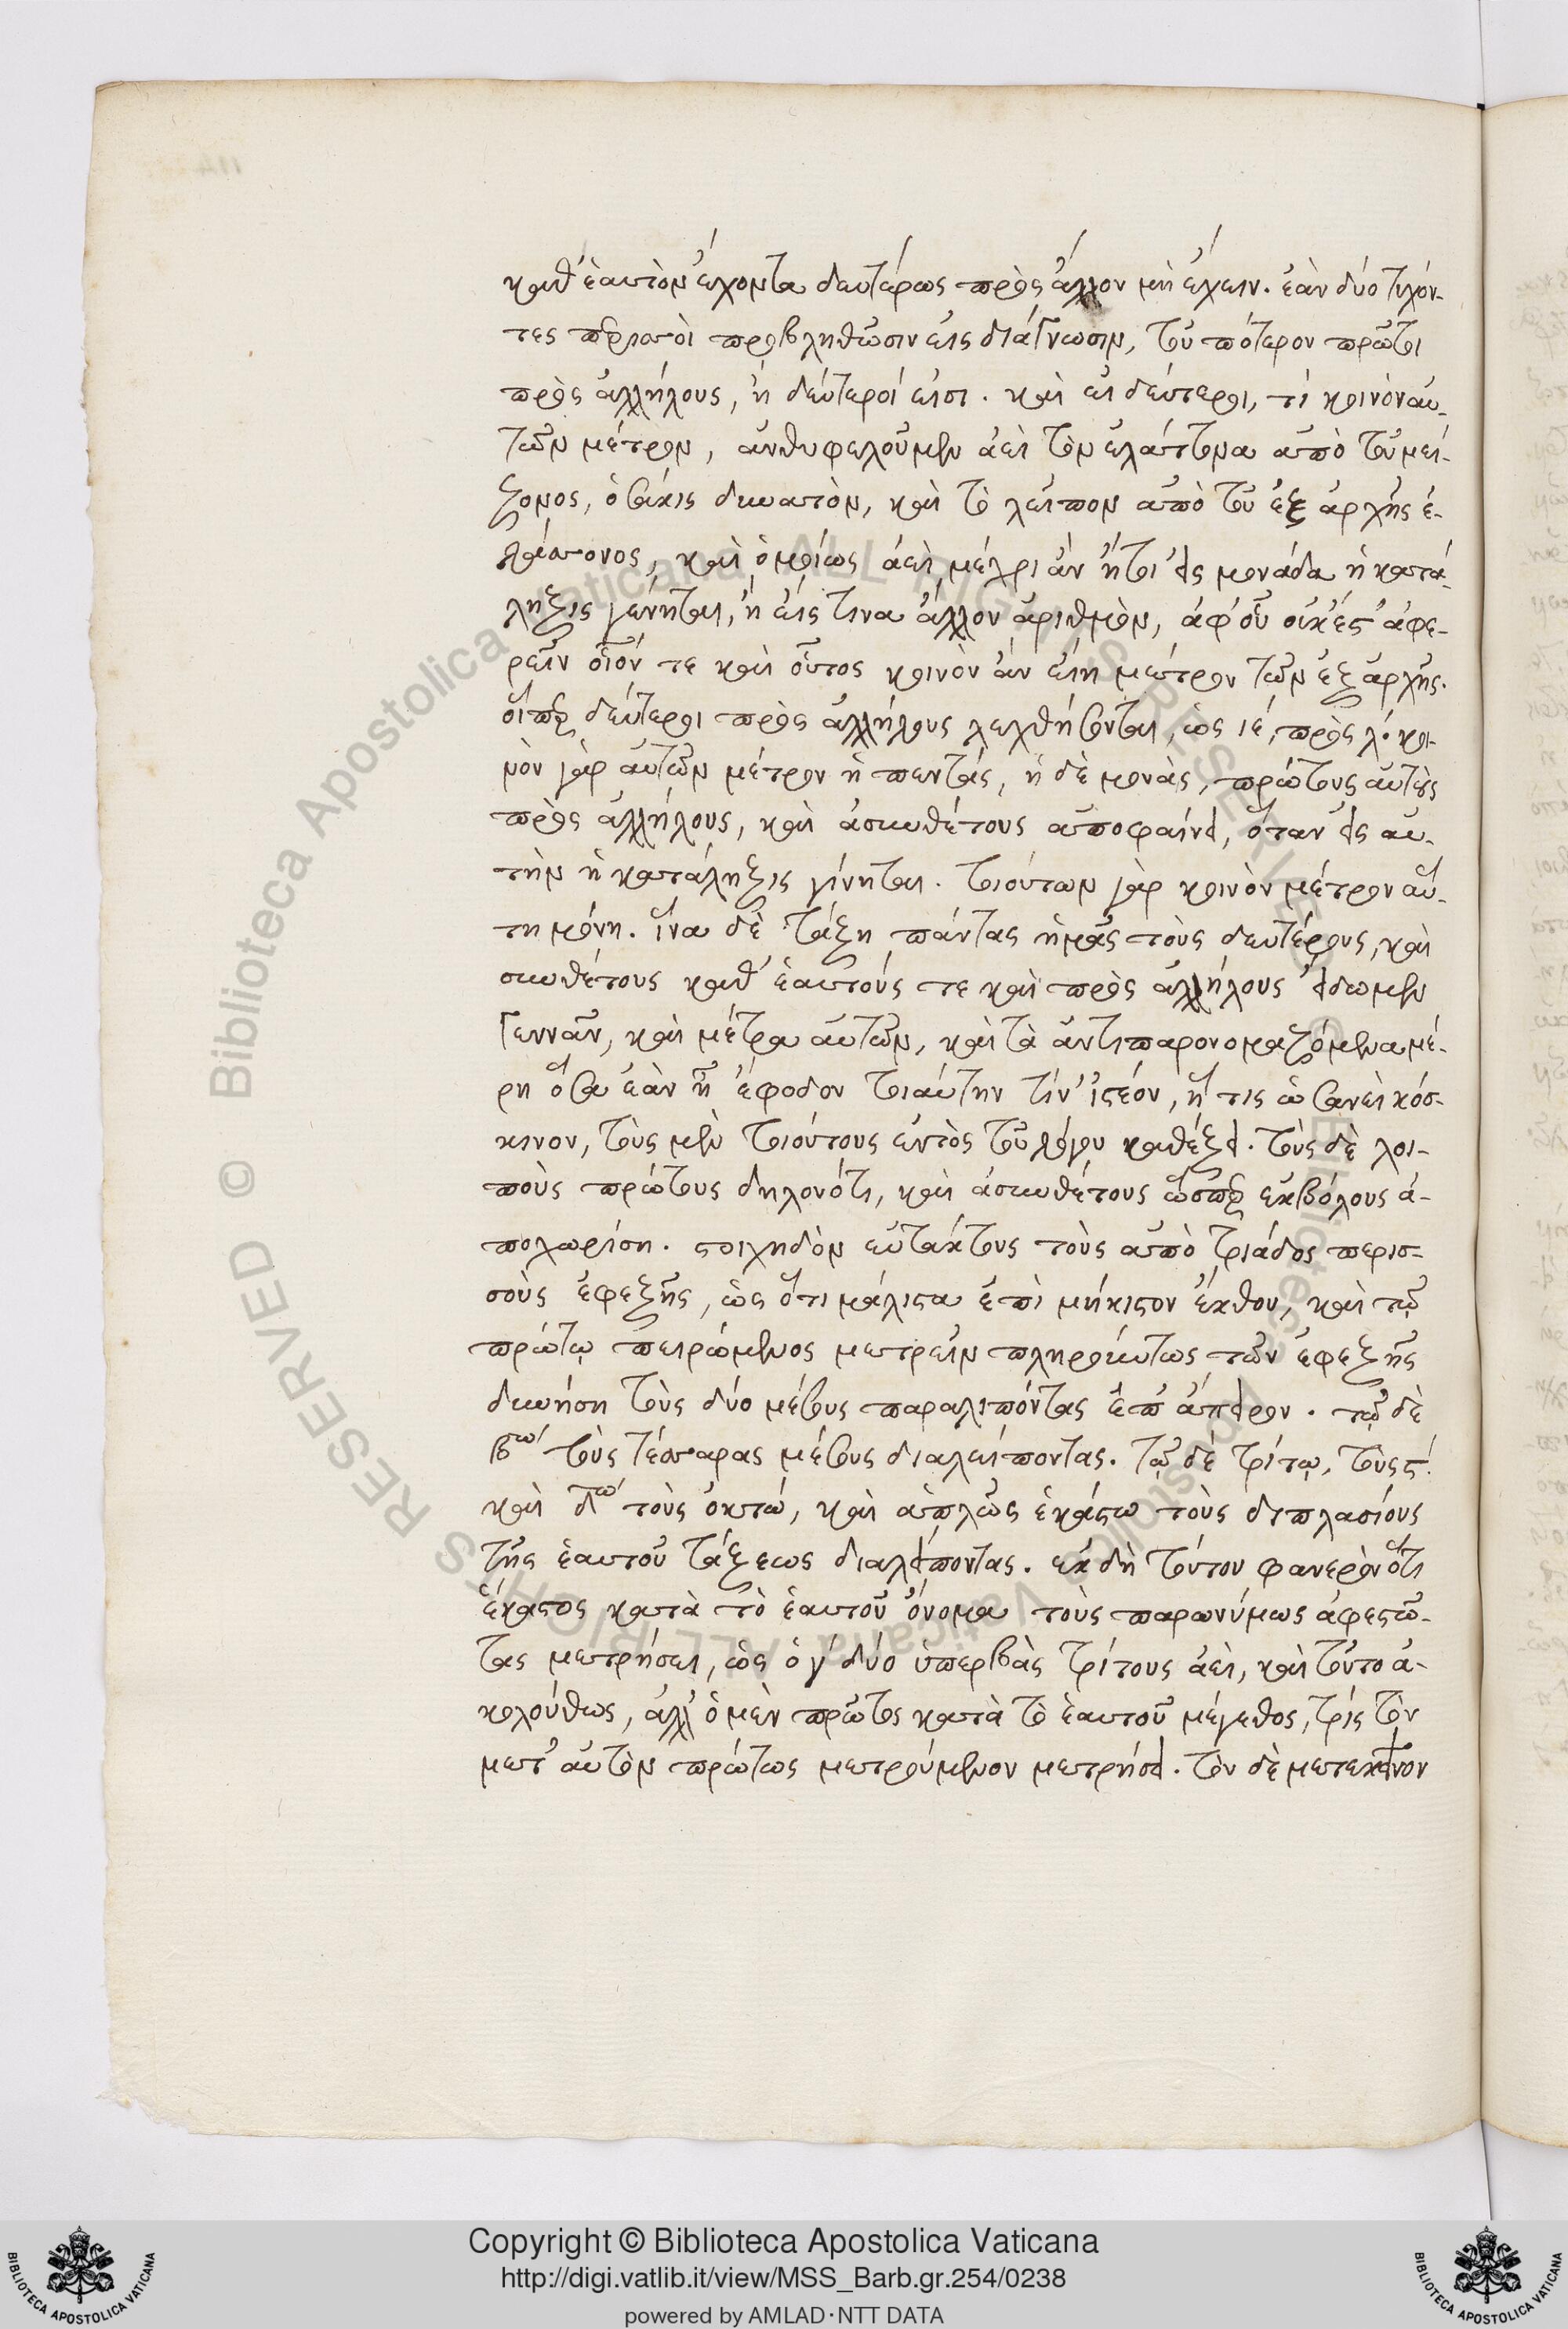 καθ' ἑαυτὸν ἔχοντα δευτέρως πρὸς ἄλλον μὴ ἔχειν. ἐὰν δύο τυχόν-
τες περισσοὶ προβληθῶσιν εἰς διάγνωσιν, τοῦ πότερον πρῶτοι
πρὸς ἀλλήλους, ἢ δεύτεροί εἰσι. καὶ εἰ δεύτεροι, τί κοινὸν αὐ-
τῶν μέτρον, ἀνθυφελοῦμεν ἀεὶ τὸν ἐλάττονα ἀπὸ τοῦ μεί-
ζονος, ὁσάκις δυνατὸν, καὶ τὸ λεῖπον ἀπὸ τοῦ ἐξ ἀρχῆς ἐ-
λάσσονος, καὶ ὁμοίως ἀεὶ μέχρι ἂν ἤτοι εἰς μονάδα ἡ κατά-
ληξις γένηται, ἢ εἴς τινα ἄλλον ἀριθμὸν, ἀφ' οὗ οὐκέτ' ἀφε-
ρεῖν οἷόν τε καὶ οὗτος κοινὸν ἂν εἴη μέτρον τῶν ἐξ ἀρχῆς.
οἵπερ δεύτεροι πρὸς ἀλλήλους λεχθήσονται, ὡς ιέ, πρὸς λ· κοι-
νὸν γὰρ αὐτῶν μέτρον ἡ πεντάς, ἡ δὲ μονὰς, πρώτους αὐτοὺς
πρὸς ἀλλήλους, καὶ ἀσυνθέτους ἀποφαίνει, ὅταν εἰς αὐ-
τὴν ἡ κατάληξις γίνηται. τοιούτων γὰρ κοινὸν μέτρον αὕ-
τη μόνη. ἵνα δὲ τάξῃ πάντας ἡμᾶς τοὺς δευτέρους, καὶ
συνθέτους καθ' ἑαυτούς τε καὶ πρὸς ἀλλήλους εἰδῶμεν
γεννᾶν, καὶ μέτρα αὐτῶν, καὶ τὰ ἀντιπαρονομαζόμενα μέ-
ρη ὅσα ἐὰν ᾖ ἔφοδον τοιαύτην τίν' ἰστέον, ἥτις ὡσανεὶ κόσ-
κινον, τοὺς μὲν τοιούτους ἐντὸς τοῦ λόγου καθέξει. τοὺς δὲ λοι-
ποὺς πρώτους δηλονότι, καὶ ἀσυνθέτους ὥσπερ ἐκβόλους ἀ-
ποχωρίσῃ. στοιχηδὸν εὐτάκτους τοὺς ἀπὸ τριάδος περισ-
σοὺς ἐφεξῆς, ὡς ὅτι μάλιστα ἐπὶ μήκιστον ἔκθου, καὶ τῷ
πρώτῳ πειρώμενος μετρεῖν πληρούντως τῶν ἐφεξῆς
δυνήσῃ τοὺς δύο μέσους παραλιπόντας ἐπ' ἄπειρον. τῷ δὲ
βῳ τοὺς τέσσαρας μέσους διαλείποντας. τῷ δὲ τρίτῳ, τοὺς ϛ.
καὶ δῳ τοὺς ὀκτώ, καὶ ἁπλῶς ἑκάστῳ τοὺς διπλασίους
τῆς ἑαυτοῦ τάξεως διαλείποντας. ἐκ δὴ τούτου φανερὸν ὅτι
ἕκαστος κατὰ τὸ ἑαυτοῦ ὄνομα τοὺς παρωνύμως ἀφεστῶ-
τας μετρήσει, ὡς ὁ γ' δύο ὑπερβὰς τρίτους ἀεὶ, καὶ τοῦτο ἀ-
κολούθως, ἀλλ' ὁ μὲν πρῶτος κατὰ τὸ ἑαυτοῦ μέγεθος, τρὶς τὸν
μετ' αὐτὸν πρώτως μετρούμενον μετρήσει. τὸν δὲ μετεκεῖνον
Copyright © Biblioteca Apostolica Vaticana
http://digi.vatlib.it/view/MSS_Barb.gr.254/0238
powered by AMLAD·NTT DATA